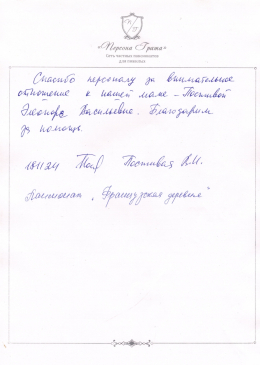 «Персона Грата»
Сеть частных пансионатов
для пожилых
Спасибо персоналу за внимательное
отношение к нашей маме – Постивой
Элеоноре Васильевне. Благодарим
за помощь.
Постивая
Пансионат „Французская деревня"